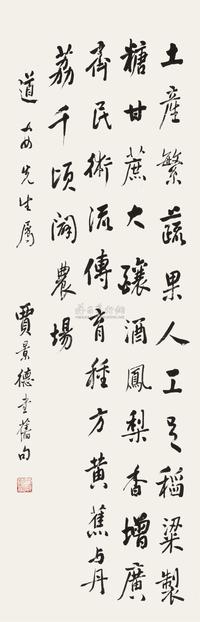 土產繁蔬果人工足稻粱製
糖甘蔗大釀酒鳳梨香增廣
齊民術流傳育種方黃蕉与丹
荔千頃闢農場
道安先生屬
賈景德書舊句